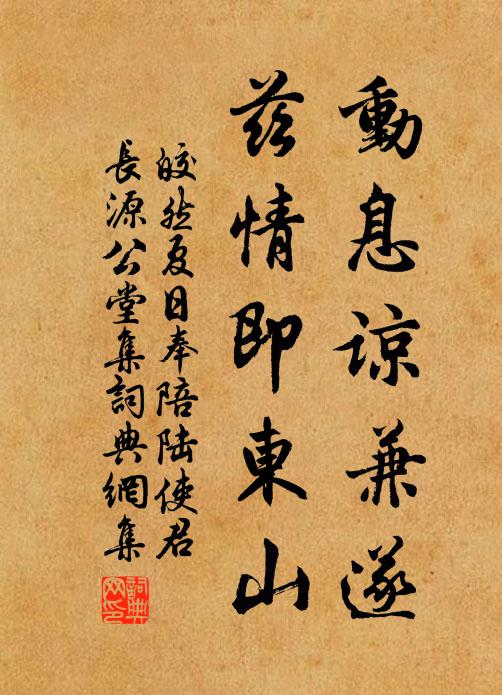 動息諒兼遂
茲情即東山
皎然夏日奉陪陸使君
長源公堂集詞典網集
詞典
网印